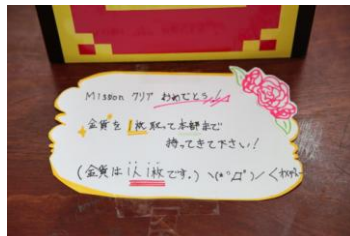 Mission クリア おめでとう!!
金貨を1枚取って本部まで
持ってきて下さい!
(金貨は1人1枚です。)